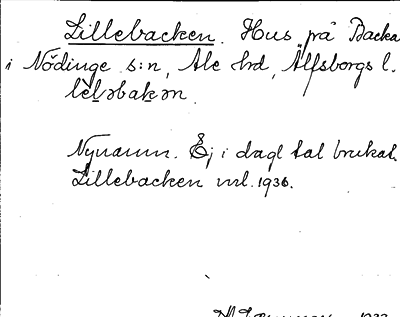 Lillebacken. Hus på Backa
i Nödinge s:n, Ale hd, Älfsborgs l.
lèl̡əbak̡ən.
Nynamn. Ej i dagl tal brukat.
Lillebacken ml. 1936.